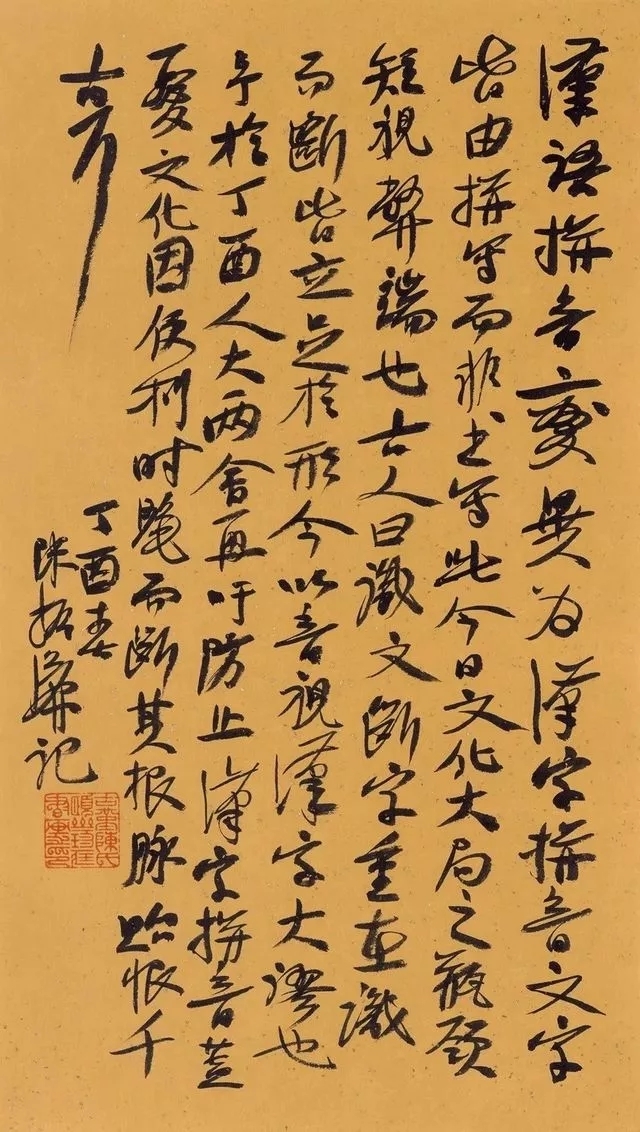 漢語拼音變異为漢字拼音文字
皆由拼写而非书写此今日文化大局之瓶颈
短視弊端也古人曰識文断字重在識
而斷皆立足於形今以音視漢字大謬也
予於丁酉人大两會再吁防止漢字拼音蓋
憂文化因便利時髦而断其根脉贻恨千
古
丁酉春
陈振濂记